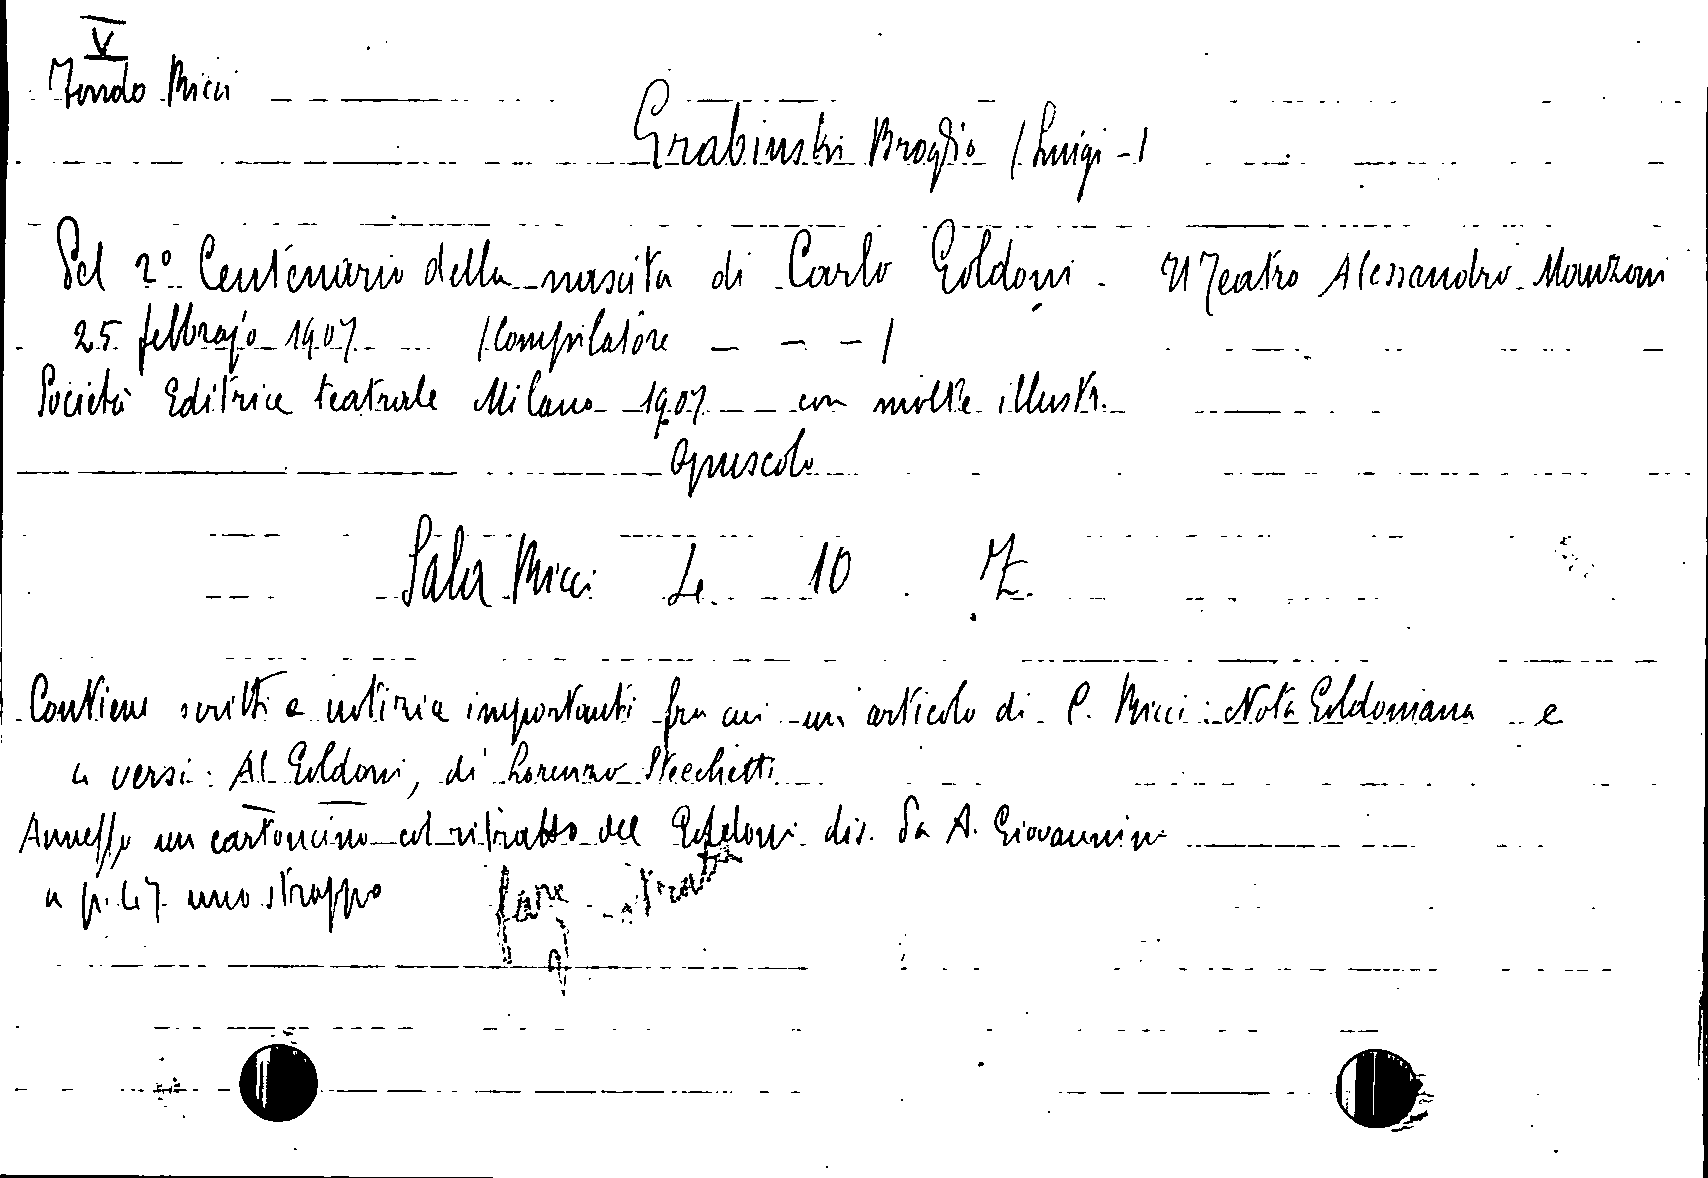 V
Fondo Ricci
Grabinski Broglio (Luigi -)
Pel 2º Centenario della nascita di Carlo Goldoni. Il Teatro Alessandro Manzoni
25 febbrajo 1907 (Compilatore - - -)
Società Editrice teatrale Milano 1907 con molte illustr.
Opuscolo
Sala Ricci 10
Contiene scritti e notizie importanti fra cui un articolo di C. Ricci: Nota Goldoniana e
versi: Al Goldoni, di Lorenzo Stecchetti
Annesso un cartoncino col ritratto del Goldoni dis. da A. Giovannini
a p. 47 uno strappo